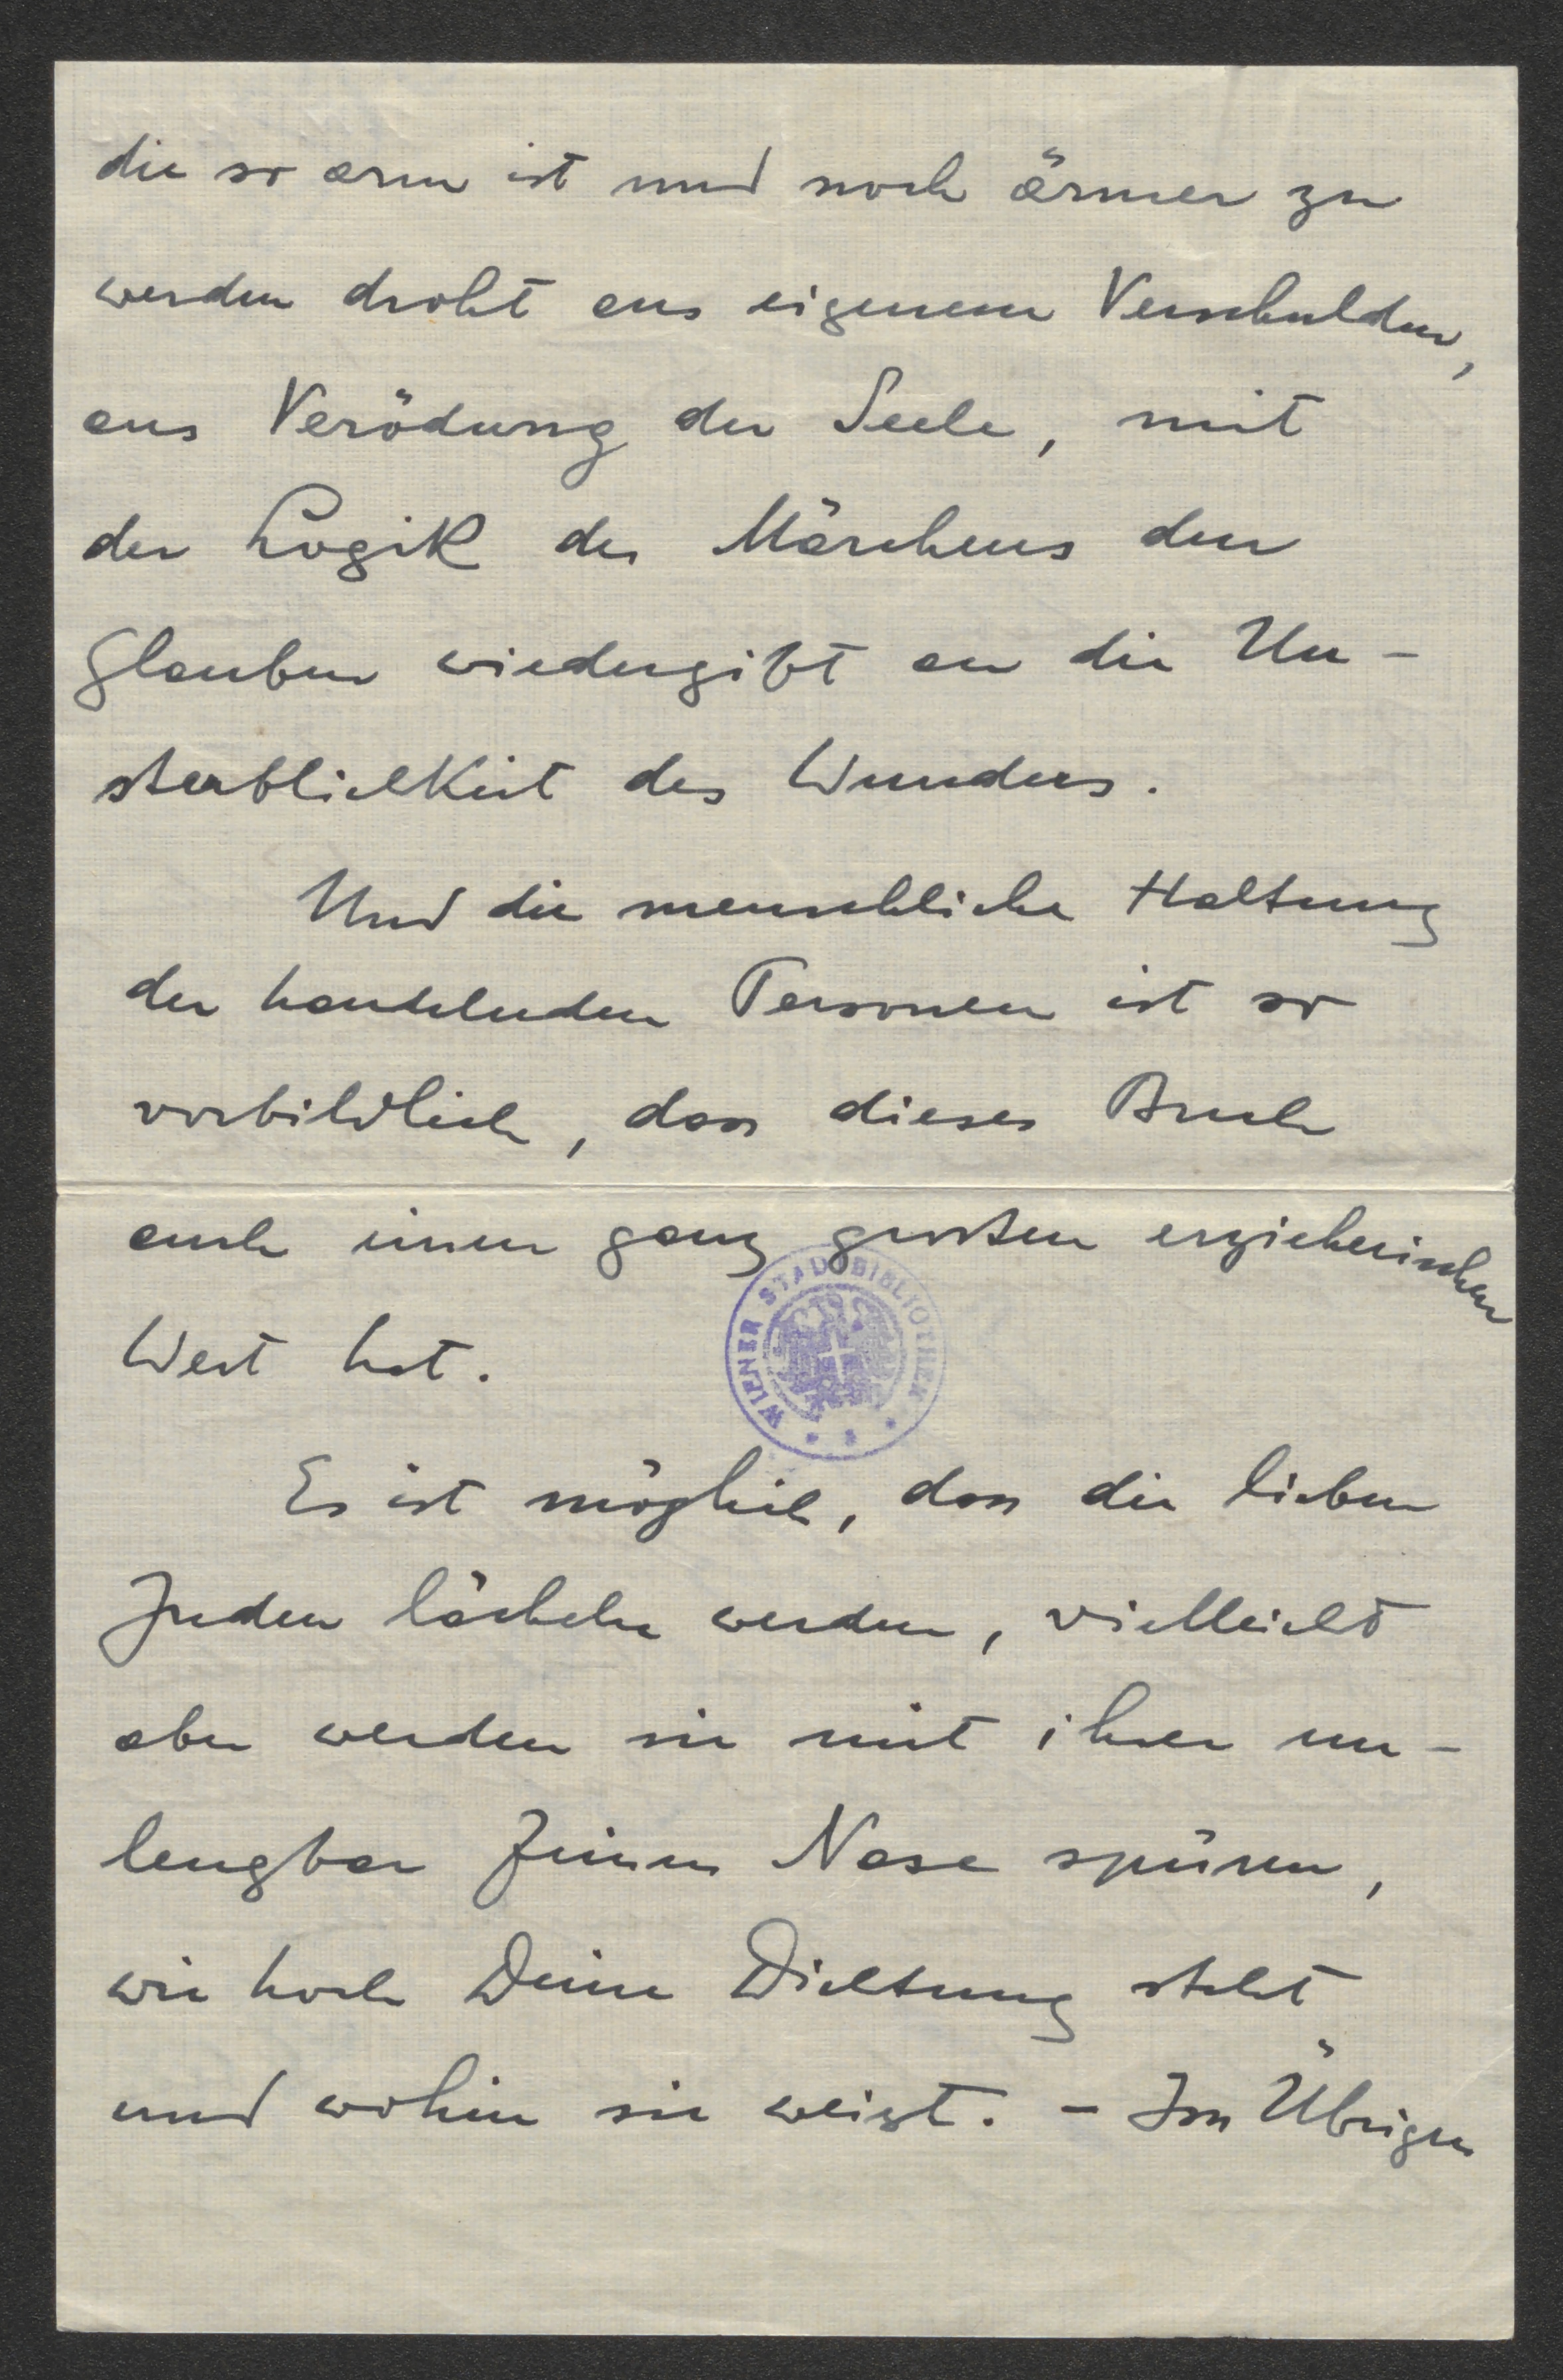 die so arm ist und noch ärmer zu
werden droht aus eigenem Verschulden,
aus Verödung der Seele, mit
der Logik des Märchens den
Glauben wiedergibt an die Un-
sterblichkeit des Wunders.
Und die menschliche Haltung
der handelnden Personen ist so
vorbildlich, dass dieses Buch
auch einen ganz grossen erzieherischen
Wert hat.
WIENER STADTBIBLIOTHEK
Es ist möglich, dass die lieben
Juden lächeln werden, vielleicht
aber werden sie mit ihrer un-
leugbar feinen Nase spüren,
wie hoch Deine Dichtung steht
und wohin sie weist. - Im Übrigen